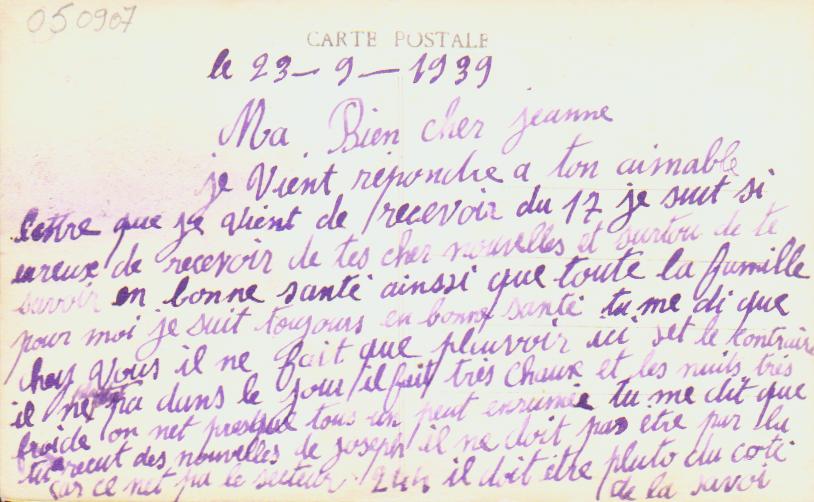 050907
CARTE POSTALE
le 23 - 9 - 1939
Ma Bien cher jeanne
je Vient répondre a ton aimable
lettre que je vient de recevoir du 17 je suit si
ureux de recevoir de tes cher nouvelles et surtou de te
savoir en bonne santé ainssi que toute la famille
pour moi je suit toujours en bonne santé tu me di que
chez Vous il ne fait que pleuvoir ici set le contraire
il ne pa dans le jour il fait trés chaux et les nuits trés
froide on net presque tous un peut enrumée tu me dit que
tu recut des nouvelles de joseph il ne doit pas être par la
car ce net pa le secteur 244 il doit être pluto du coté
de la savoi